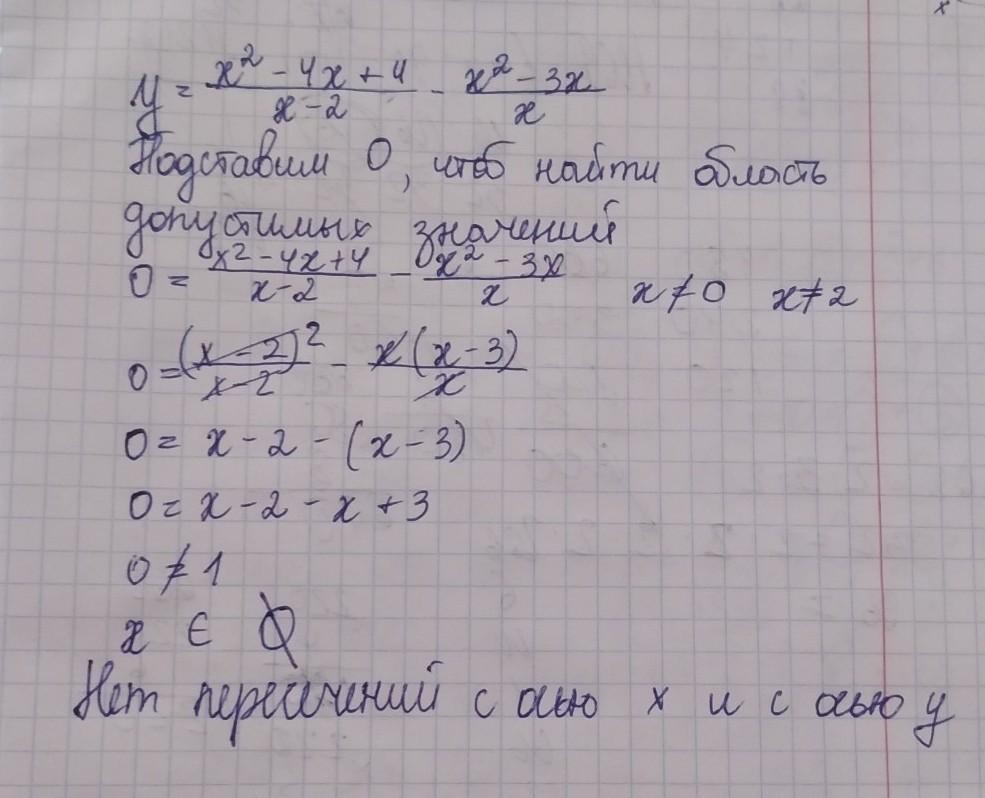 x
y = (x² - 4x + 4)/(x - 2) - (x² - 3x)/x
Подставим 0, чтоб найти область
допустимых значений
0 = (x² - 4x + 4)/(x - 2) - (x² - 3x)/x   x ≠ 0   x ≠ 2
0 = (x - 2)²/(x - 2) - x(x - 3)/x
0 = x - 2 - (x - 3)
0 = x - 2 - x + 3
0 ≠ 1
x ∈ ∅
Нет пересечений с осью x и с осью y